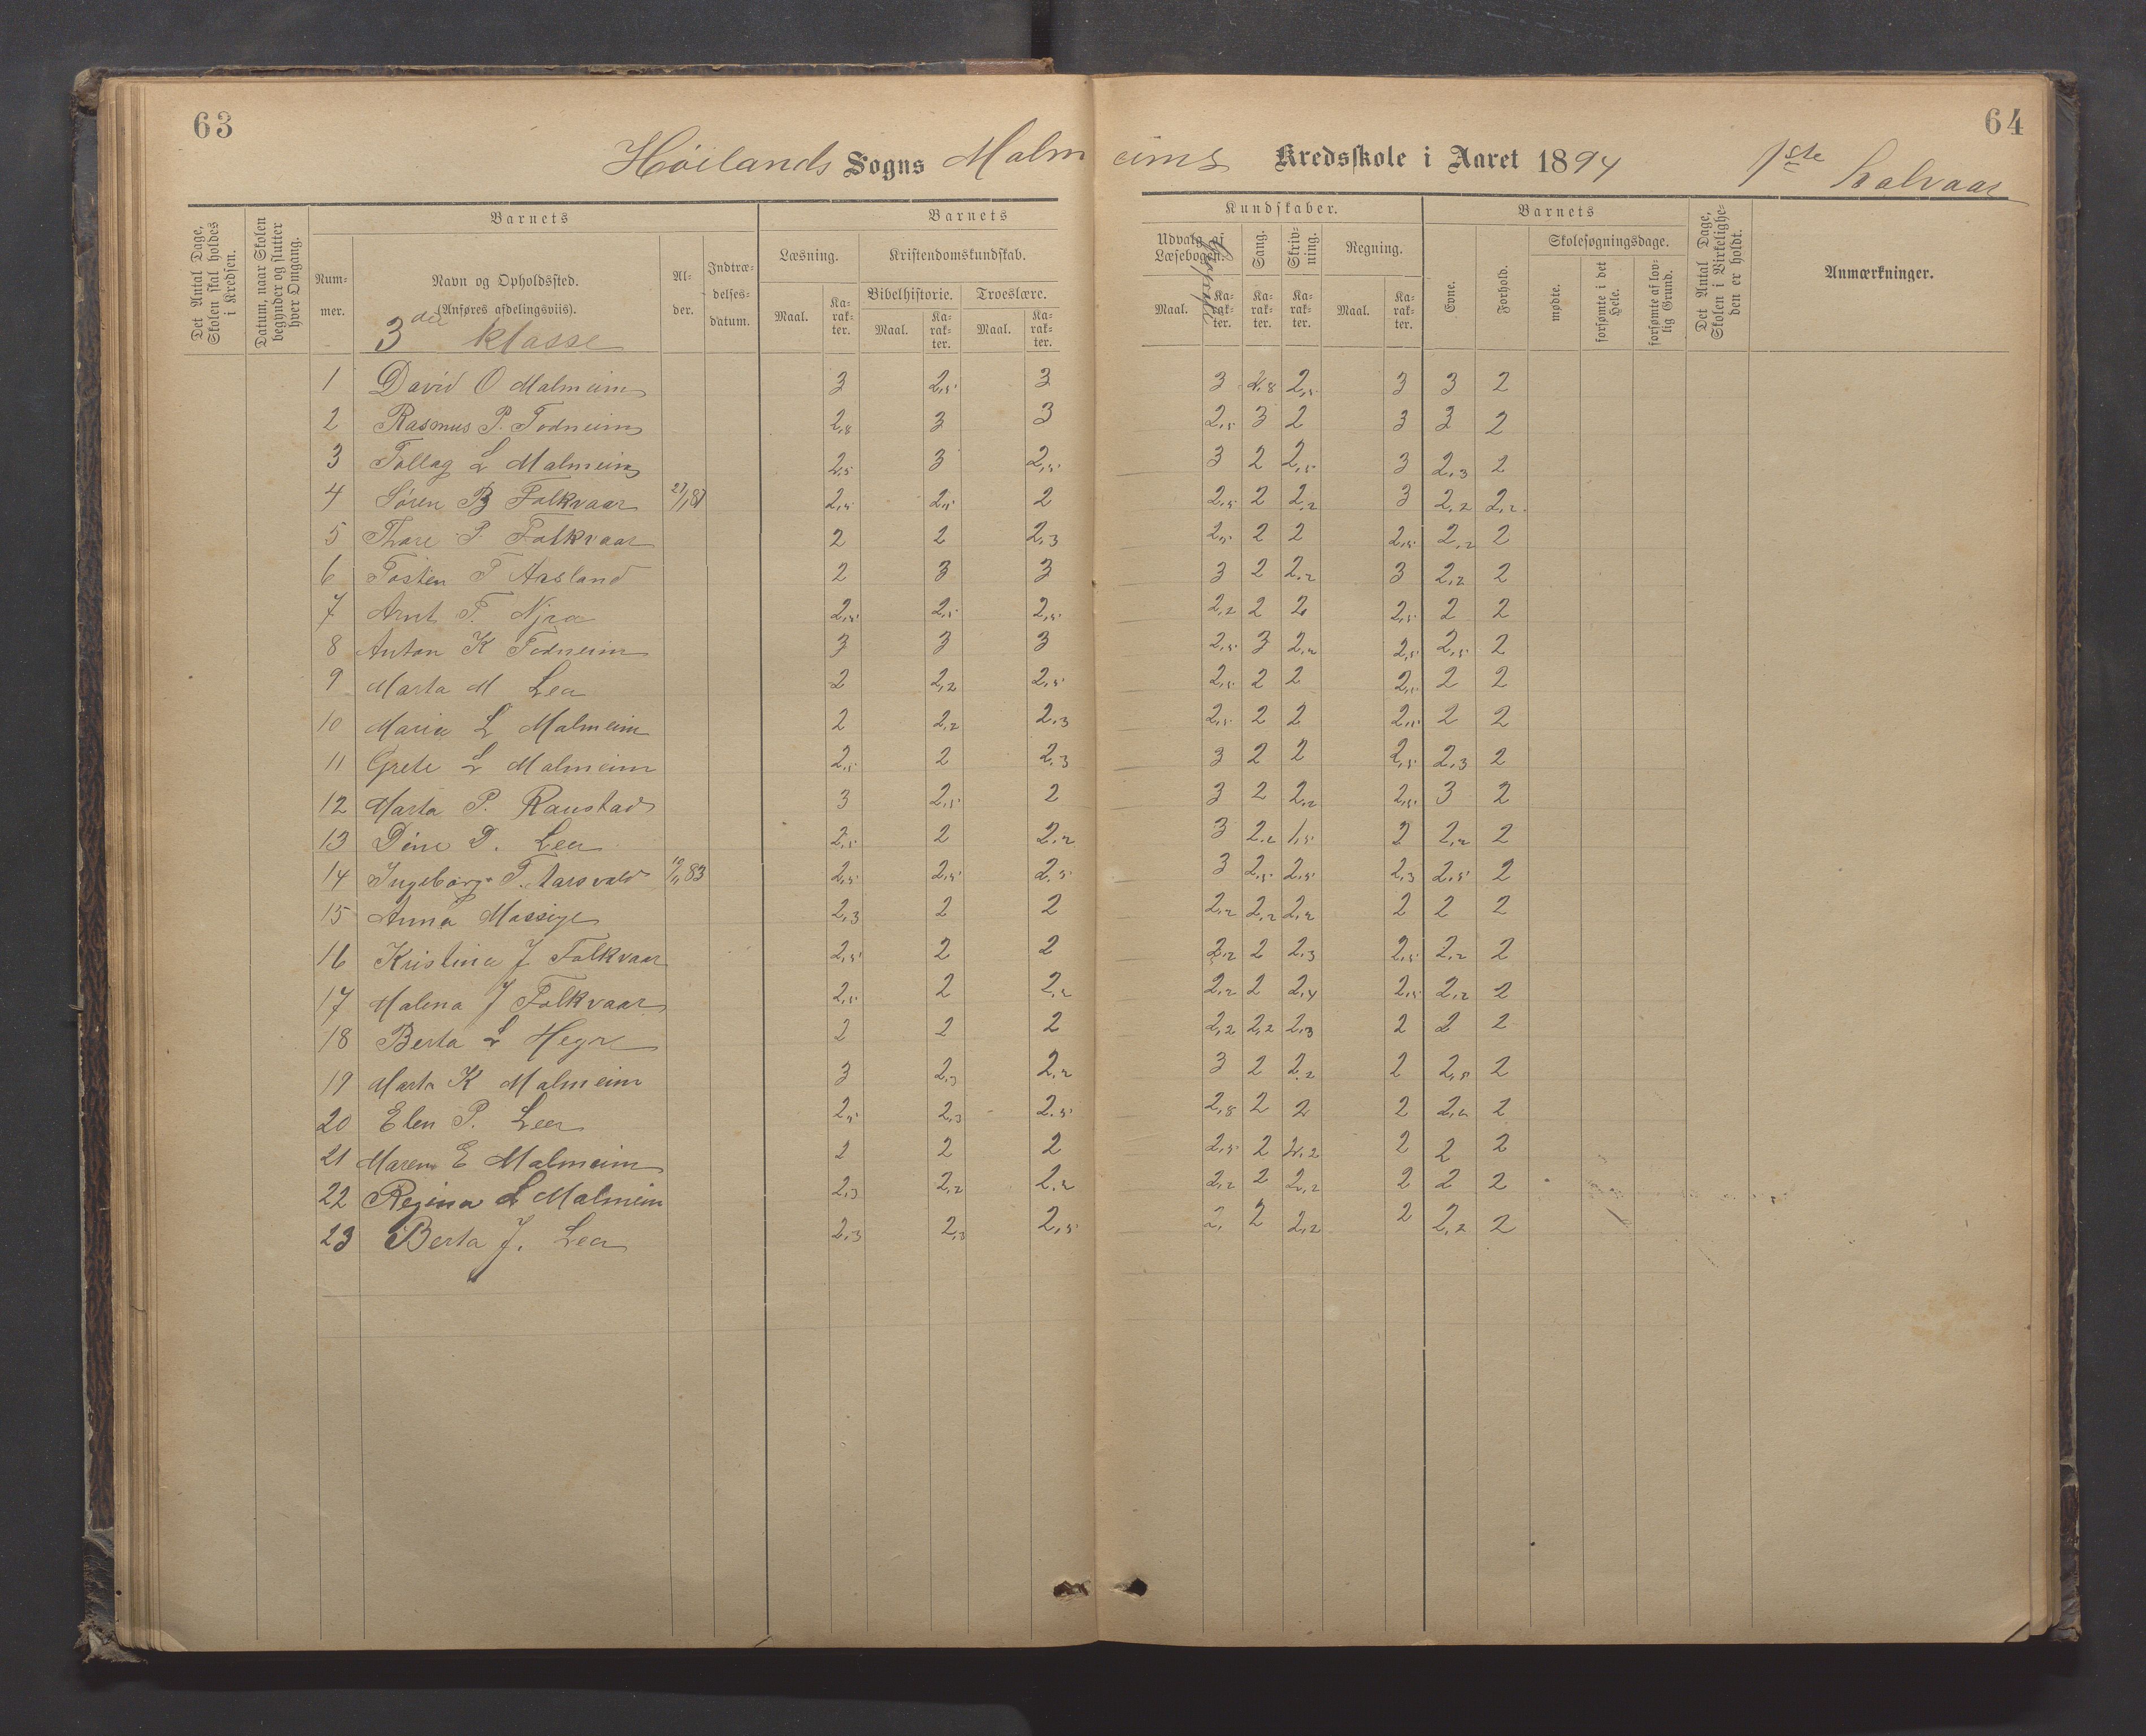 63
64
Høilands Sogns Malmeims Kredsskole i Aaret 1894 1ste halvaar
Det Antal Dage, Skolen skal holdes i Kredsen.
Datum, naar Skolen begynder og slutter hver Omgang.
Barnets
Barnets
Kundskaber.
Barnets
Det Antal Dage, Skolen i Virkeligheden er holdt.
Anmærkninger.
Nummer.
Navn og Opholdssted. (Anføres afdelingsviis).
Alder.
Indtrædelsesdatum.
Læsning.
Kristendomskundskab.
Udvalg af Læsebogen.
Sang.
Skrivning.
Regning.
Evne.
Forhold.
Skolesøgningsdage.
Bibelhistorie. Troeslære.
mødte.
forsømte i det Hele.
forsømte af lovlig Grund.
Maal. Karakter. Maal. Karakter. Maal. Karakter. Maal. Karakter. Karakter. Karakter. Maal. Karakter.
3die klasse
1 David O Malmeim 3 2,5 3 3 2,8 2,5 3 3 2
2 Rasmus P. Todneim 2,8 3 3 2,5 3 2 3 3 2
3 Tollag L Malmeim 2,5 3 2,5 3 2 2,5 3 2,3 2
4 Søren B Folkvaar 2,5 2,5 2 2,5 2 2,2 3 2,2 2,2
5 Thore P Folkvaar 2 2 2,3 2,5 2 2 2,5 2,2 2
6 Tosten T Aasland 2 3 3 3 2 2,2 3 2,2 2
7 Arnt T. Njaa 2,5 2,5 2,5 2,2 2 2 2,5 2 2
8 Anton K Todneim 3 3 3 2,5 3 2,2 2,5 2,5 2
9 Marta M Lea 2 2,2 2,5 2,5 2 2 2,5 2 2
10 Maria L Malmeim 2 2,2 2,3 2,5 2 2 2,5 2 2
11 Grete L Malmeim 2,5 2 2,3 3 2 2 2,5 2,3 2
12 Marta P. Raustad 3 2,5 2 3 2 2,2 2,5 3 2
13 Dine D. Lea 2,5 2 2,2 3 2,2 1,5 2 2,2 2
14 Ingeborg T. Aarsvold 2,5 2,5 2,5 3 2,5 2,5 2,3 2,5 2
15 Anna Massige 2,3 2 2 2,2 2,2 2,2 2 2 2
16 Kristina J Folkvaar 2,5 2 2 2,2 2 2,3 2,5 2,2 2
17 Malena J Folkvaar 2,5 2 2,2 2,2 2 2,4 2,5 2,2 2
18 Berta L Hegre 2 2 2 2,2 2,2 2,3 2 2 2
19 Marta K Malmeim 3 2,3 2,2 3 2 2,2 2 2,5 2
20 Elen P. Lea 2,5 2,3 2,5 2,8 2 2 2 2,2 2
21 Maren E Malmeim 2 2 2 2,5 2 2,2 2 2 2
22 Regina L Malmeim 2,3 2,2 2,2 2,2 2 2,2 2 2 2
23 Berta J. Lea 2,3 2,3 2,5 2, 2 2,2 2 2,2 2